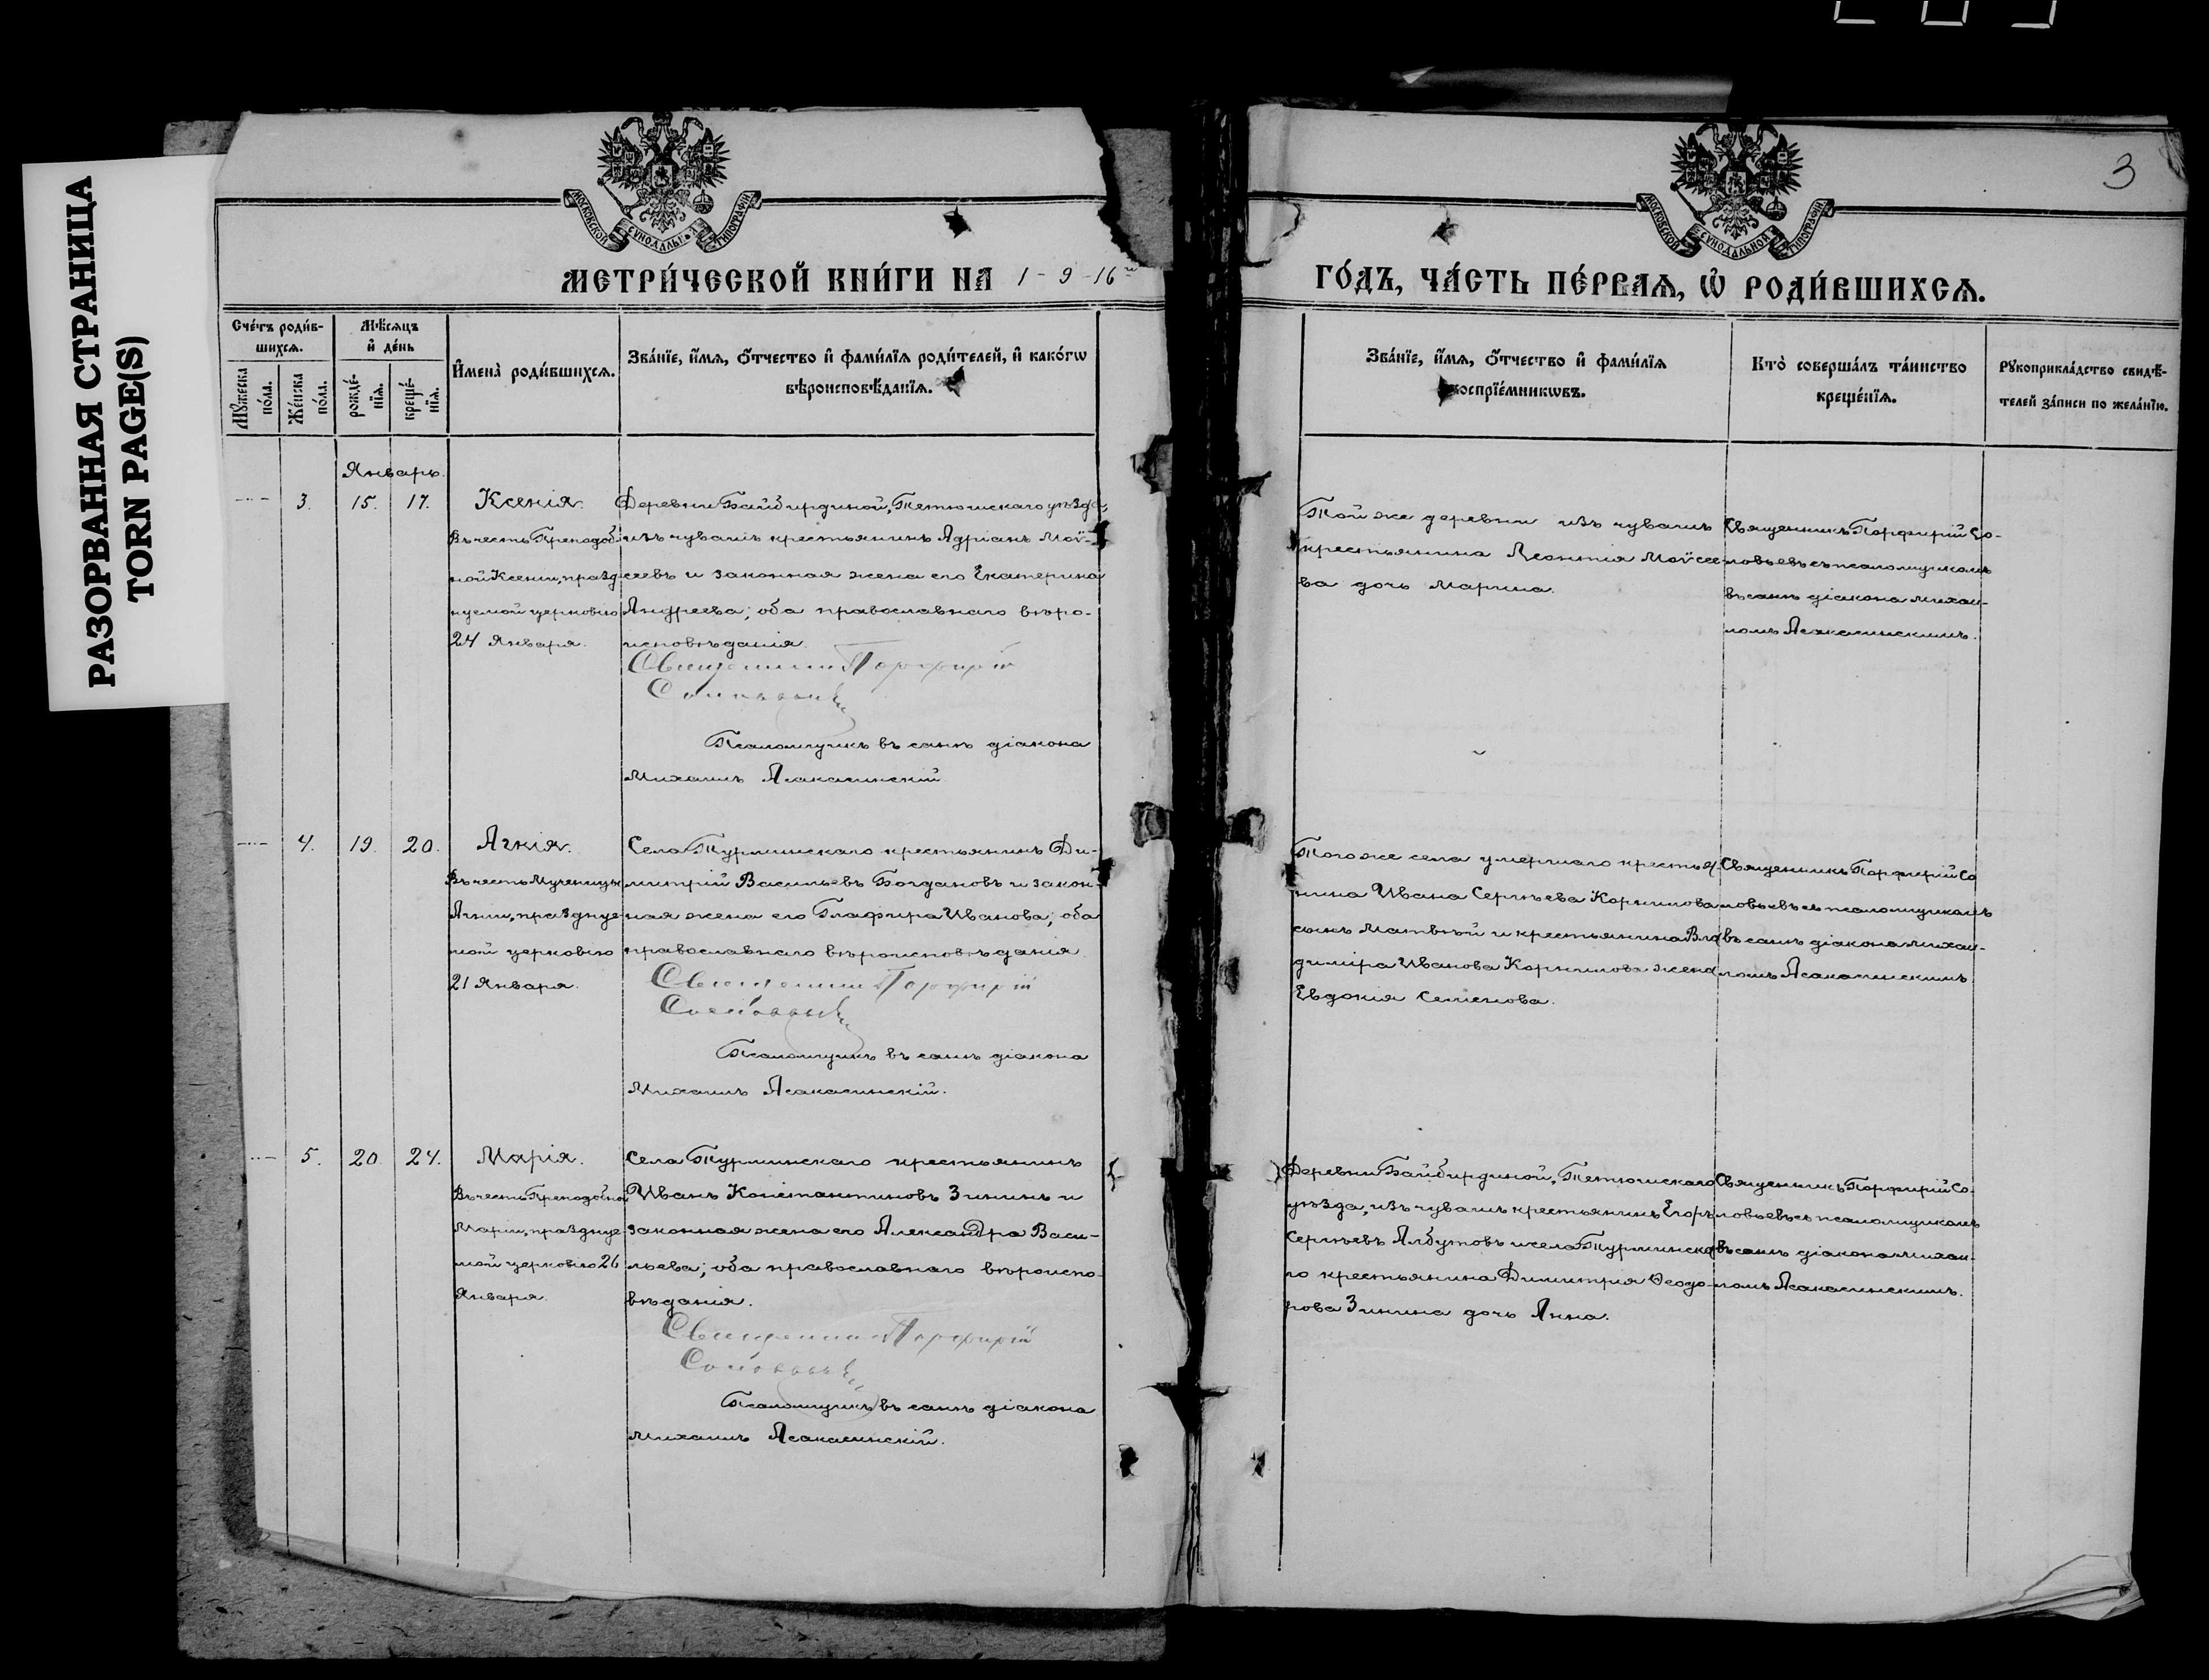 РАЗОРВАННАЯ СТРАНИЦА
TORN PAGE(S)
3
МОСКОВСКОЙ СУНОДАЛЬНОЙ ТИПОГРАФІИ
МОСКОВСКОЙ СУНОДАЛЬНОЙ ТИПОГРАФІИ
МЕТРИ́ЧЕСКОЙ КНИ́ГИ НА 1-9-16й
ГО́ДЪ, ЧА́СТЬ ПЕ́РВАѦ, Ѽ РОДИ́ВШИХСѦ.
Сче́тъ роди́в-
шихсѧ.
Мꙋжеска по́ла.
Же́нска по́ла.
Мѣ́сѧцъ
и҆ де́нь
рожде́-
нїѧ.
креще́-
нїѧ.
И҆мена̀ роди́вшихсѧ.
Зва́нїе, и҆́мѧ, ѻ҆́тчество и҆ фами́лїѧ роди́телей, и҆ како́гѡ
вѣроисповѣ́данїѧ.
Зва́нїе, и҆́мѧ, ѻ҆́тчество и҆ фами́лїѧ
воспрїе́мникѡвъ.
Кто̀ соверша́лъ та́инство
креще́нїѧ.
Рꙋкоприкла́дство свидѣ́-
телей за́писи по жела́нїю.
Январь.
3. 15. 17. Ксенія.
Въ честь Преподоб-
ной Ксеніи, празд-
нуемой церковію
24 Января.
Деревни Байбирдиной, Тетюшскаго уѣзда,
изъ чувашъ крестьянинъ Адріанъ Моѵ-
сеевъ и законная жена его Екатерина
Андреева; оба православнаго вѣро-
исповѣданія.
Священникъ Порфирій
Соловьевъ
Псаломщикъ въ санѣ діакона
Михаилъ Асакасинскій
Той же деревни изъ чувашъ
крестьянина Леонтія Моѵсее-
ва дочь Марина.
Священникъ Порфирій Со-
ловьевъ съ псаломщикомъ
въ санѣ діакона Михаи-
ломъ Асакасинскимъ.
4. 19. 20. Агнія.
Въ честь Мученицы
Агніи, празднуе-
мой церковію
21 Января.
Села Турминскаго крестьянинъ Ди-
митрій Васильевъ Богдановъ и закон-
ная жена его Глафира Иванова; оба
православнаго вѣроисповѣданія
Священникъ Порфирій
Соловьевъ
Псаломщикъ въ санѣ діакона
Михаилъ Асакасинскій.
Того же села умершаго крестья-
нина Ивана Сергѣева Корнилова
сынъ Матвѣй и крестьянина Вла-
диміра Иванова Корнилова жена
Евдокія Семенова.
Священникъ Порфирій Со
ловьевъ съ псаломщикомъ
въ санѣ діакона Михаи-
ломъ Асакасинскимъ
5. 20. 24. Марія.
Въ честь Преподобной
Маріи, празднуе-
мой церковію 26
Января.
Села Турминскаго крестьянинъ
Иванъ Константиновъ Зининъ и
законная жена его Александра Васи-
льева; оба православнаго вѣроиспо-
вѣданія.
Священникъ Порфирій
Соловьевъ
Псаломщикъ въ санѣ діакона
Михаилъ Асакасинскій.
Деревни Байбирдиной, Тетюшскаго
уѣзда, изъ чувашъ крестьянинъ Егоръ
Сергѣевъ Албутовъ и села Турминска-
го крестьянина Димитрія Ѳеодо-
рова Зинина дочь Анна.
Священникъ Порфирій Со-
ловьевъ съ псаломщикомъ
въ санѣ діакона Михаи-
ломъ Асакасинскимъ.